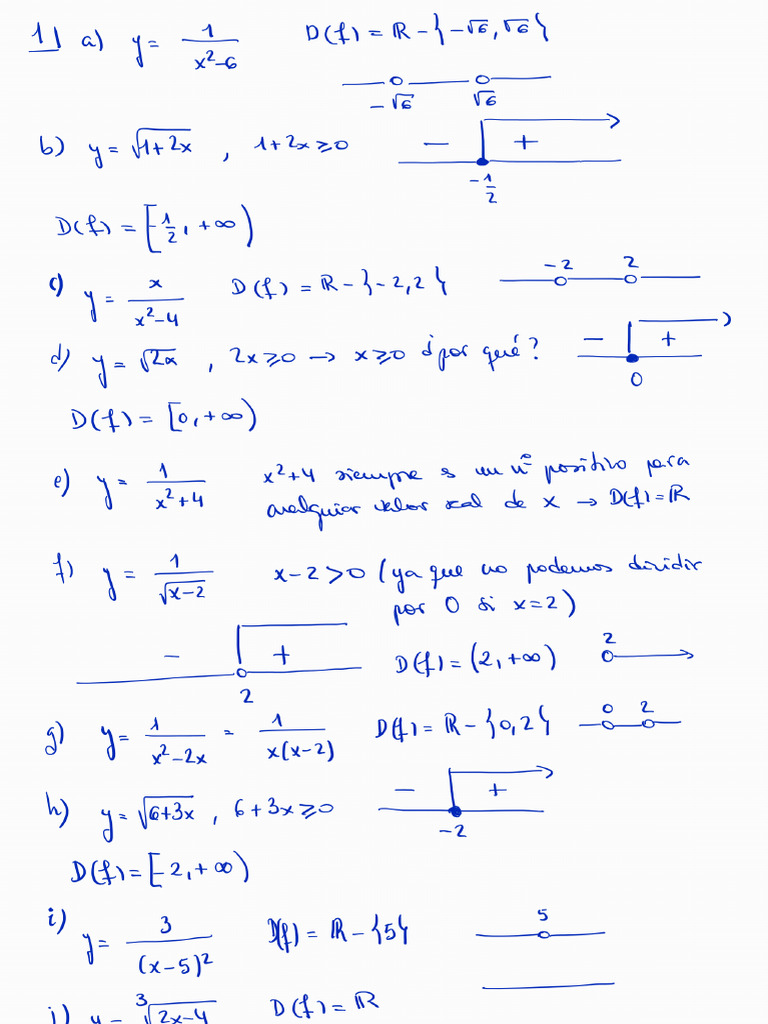 1) a) y = 1/(x²-6) D(f) = ℝ - {-√6, √6}
-√6 √6
b) y = √(1+2x) , 1+2x ≥ 0 - +
-1/2
D(f) = [-1/2, +∞)
c) y = x/(x²-4) D(f) = ℝ - {-2, 2} -2 2
d) y = √(2x) , 2x ≥ 0 → x ≥ 0 ¿por qué? - +
0
D(f) = [0, +∞)
e) y = 1/(x²+4) x²+4 siempre es un nº positivo para
cualquier valor real de x → D(f) = ℝ
f) y = 1/√(x-2) x-2 > 0 (ya que no podemos dividir
por 0 si x=2)
- + D(f) = (2, +∞) 2
2
g) y = 1/(x²-2x) = 1/(x(x-2)) D(f) = ℝ - {0, 2} 0 2
h) y = √(6+3x) , 6+3x ≥ 0 - +
-2
D(f) = [-2, +∞)
i) y = 3/(x-5)² D(f) = ℝ - {5} 5
j) y = ³√(2x-4) D(f) = ℝ